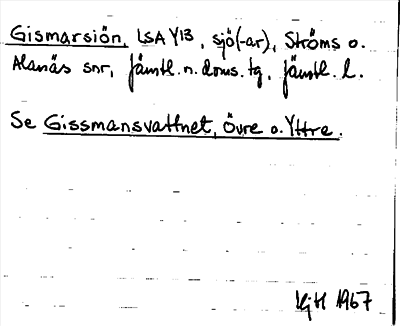 Gismarsjön, LSA Y13, sjö(-ar), Ströms o.
Alanäs snr, Jämtl. n. doms. tg, Jämtl. l.
Se Gissmansvattnet, Övre o. Yttre.
HjH 1967